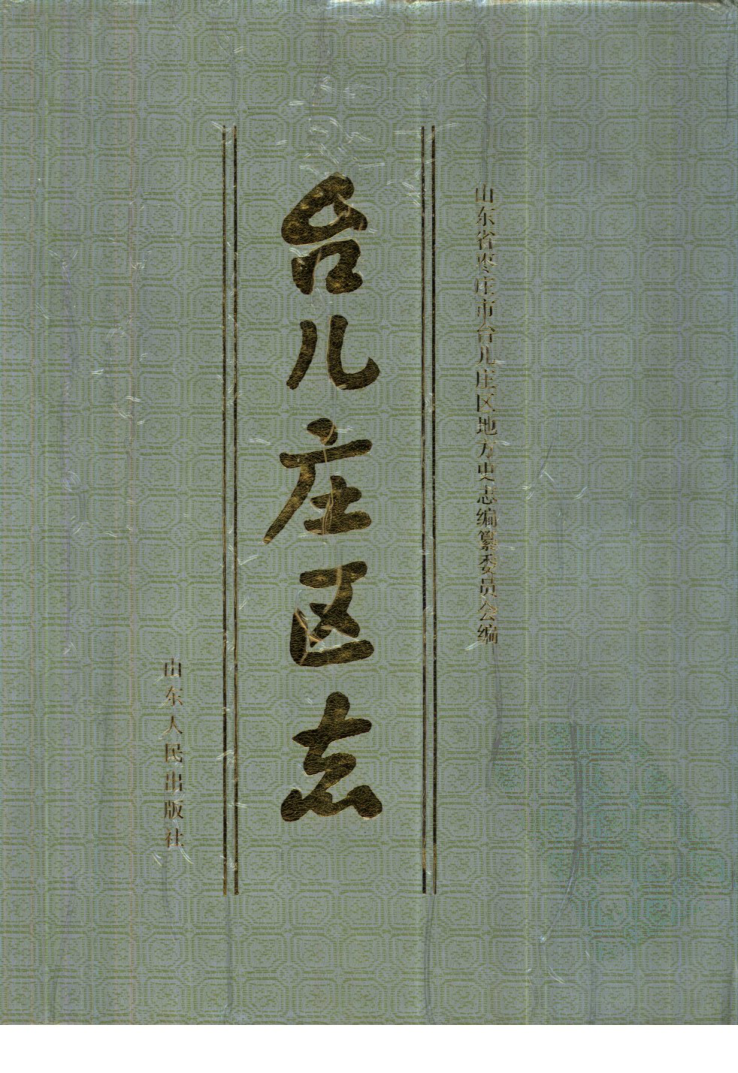 山东省枣庄市台儿庄区地方史志编纂委员会编
台儿庄区志
山东人民出版社